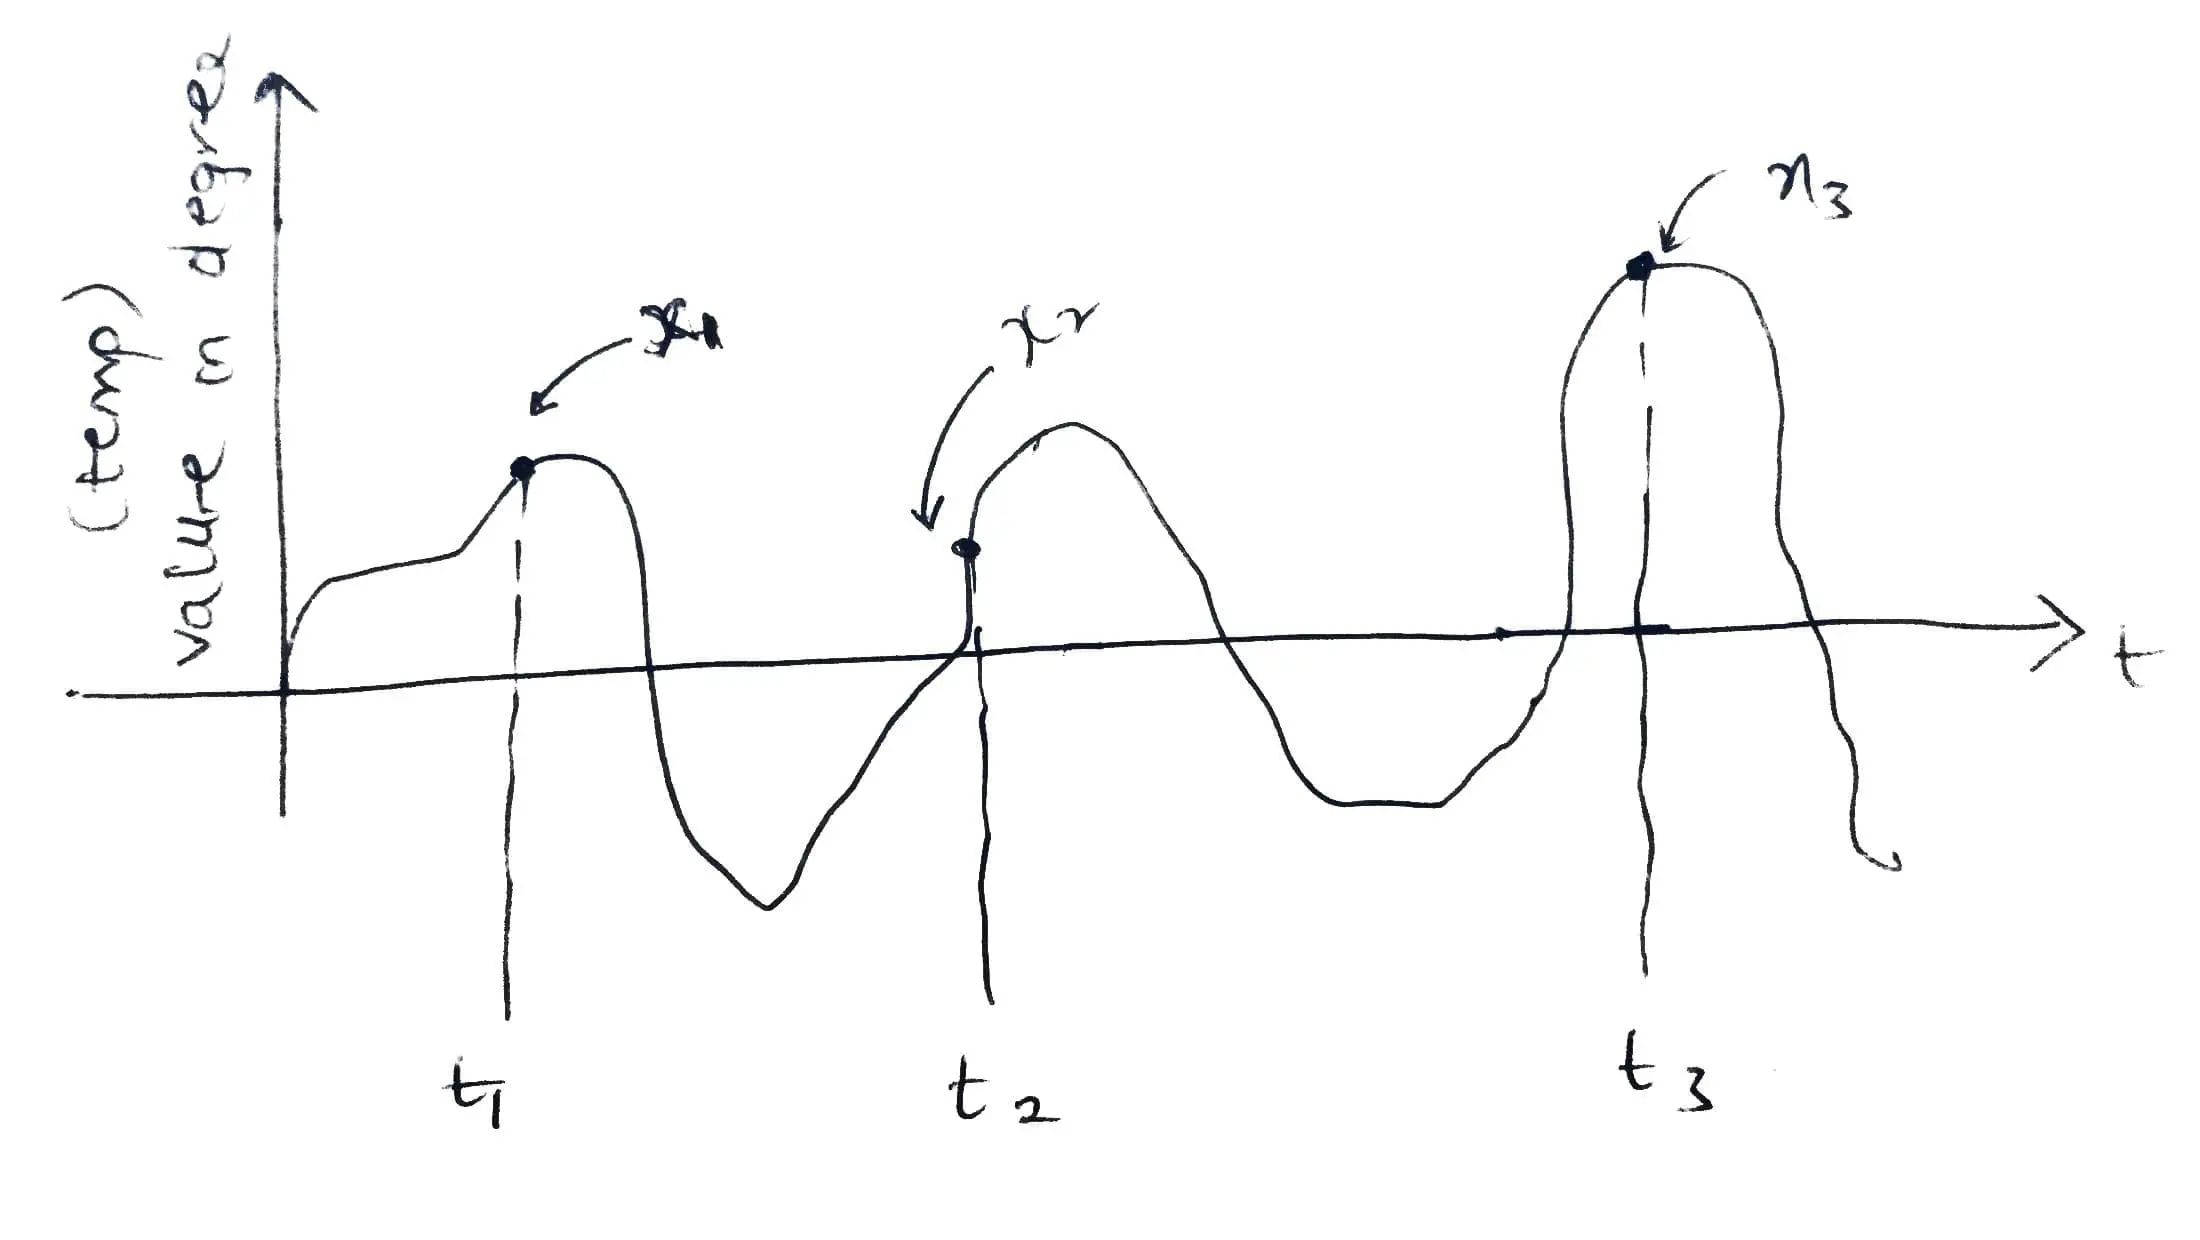 (temp)
value in degree
x1
x2
x3
t
t1
t2
t3